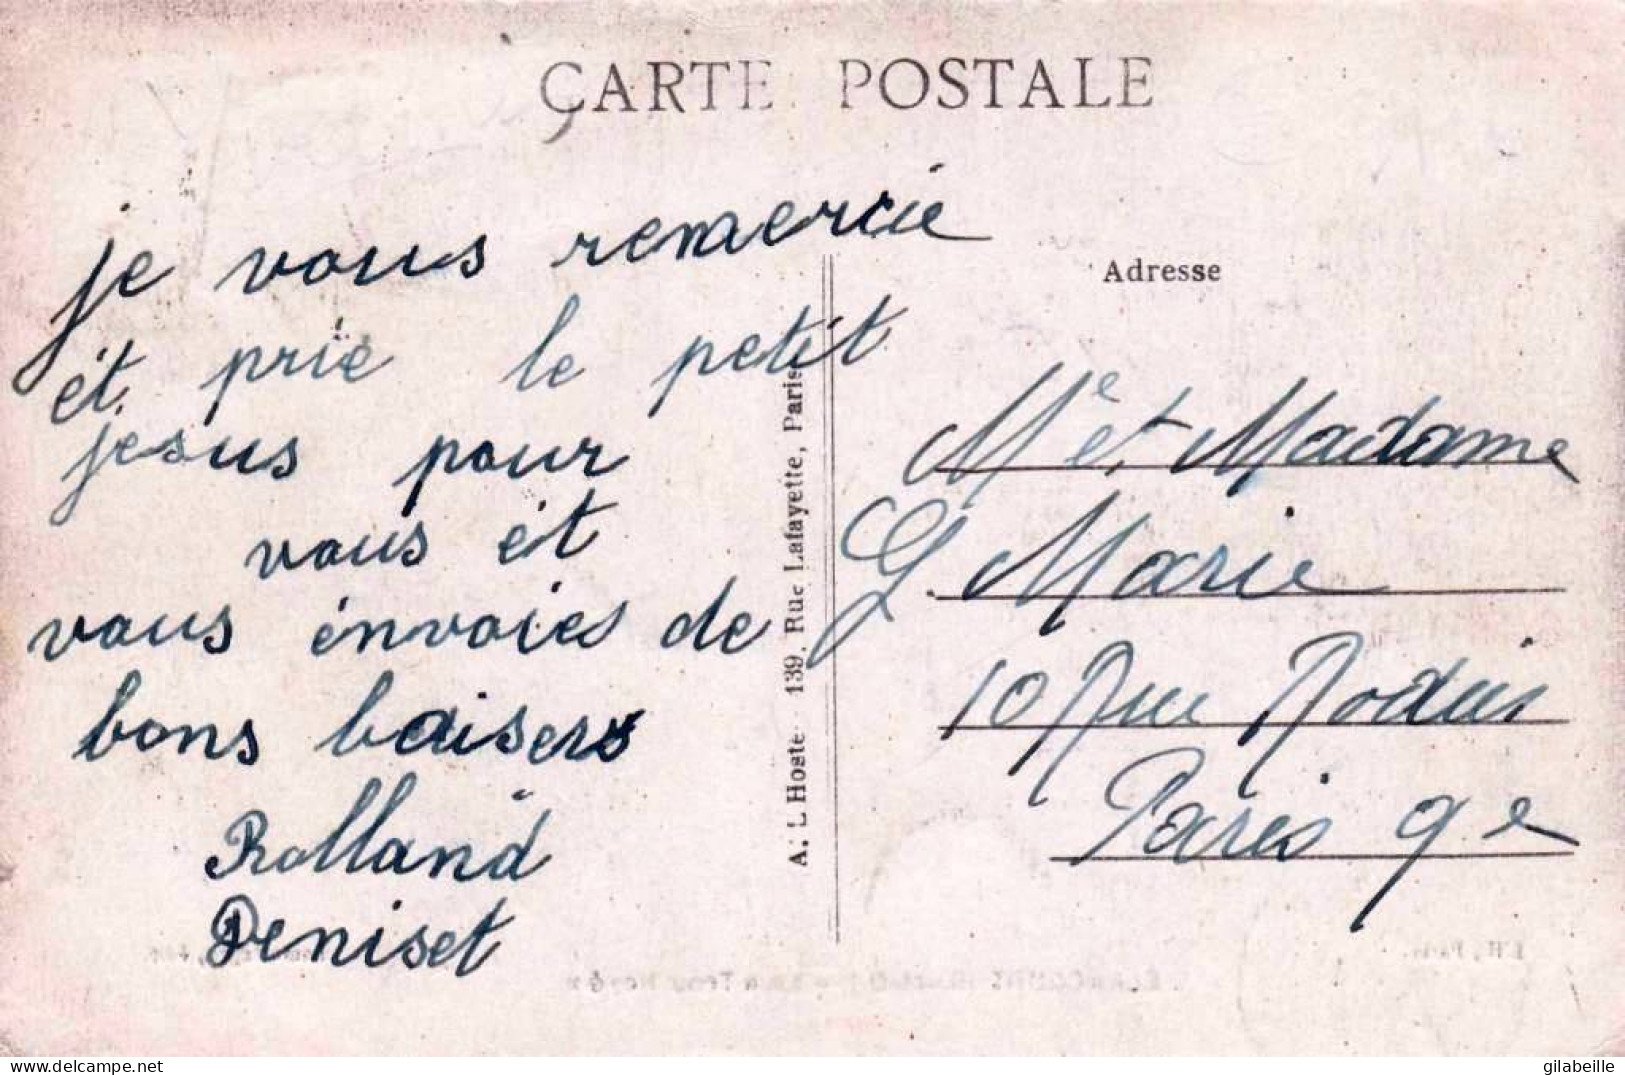 CARTE POSTALE
je vous remercie
ét prie le petit
jesus pour
vous ét
vous énvoies de
bons baisers
Rolland
Deniset
A. L'Hoste 139, Rue Lafayette, Paris
Adresse
Mr et Madame
G. Marie
10 Rue Rodier
Paris 9e
delcampe.net
gilabeille